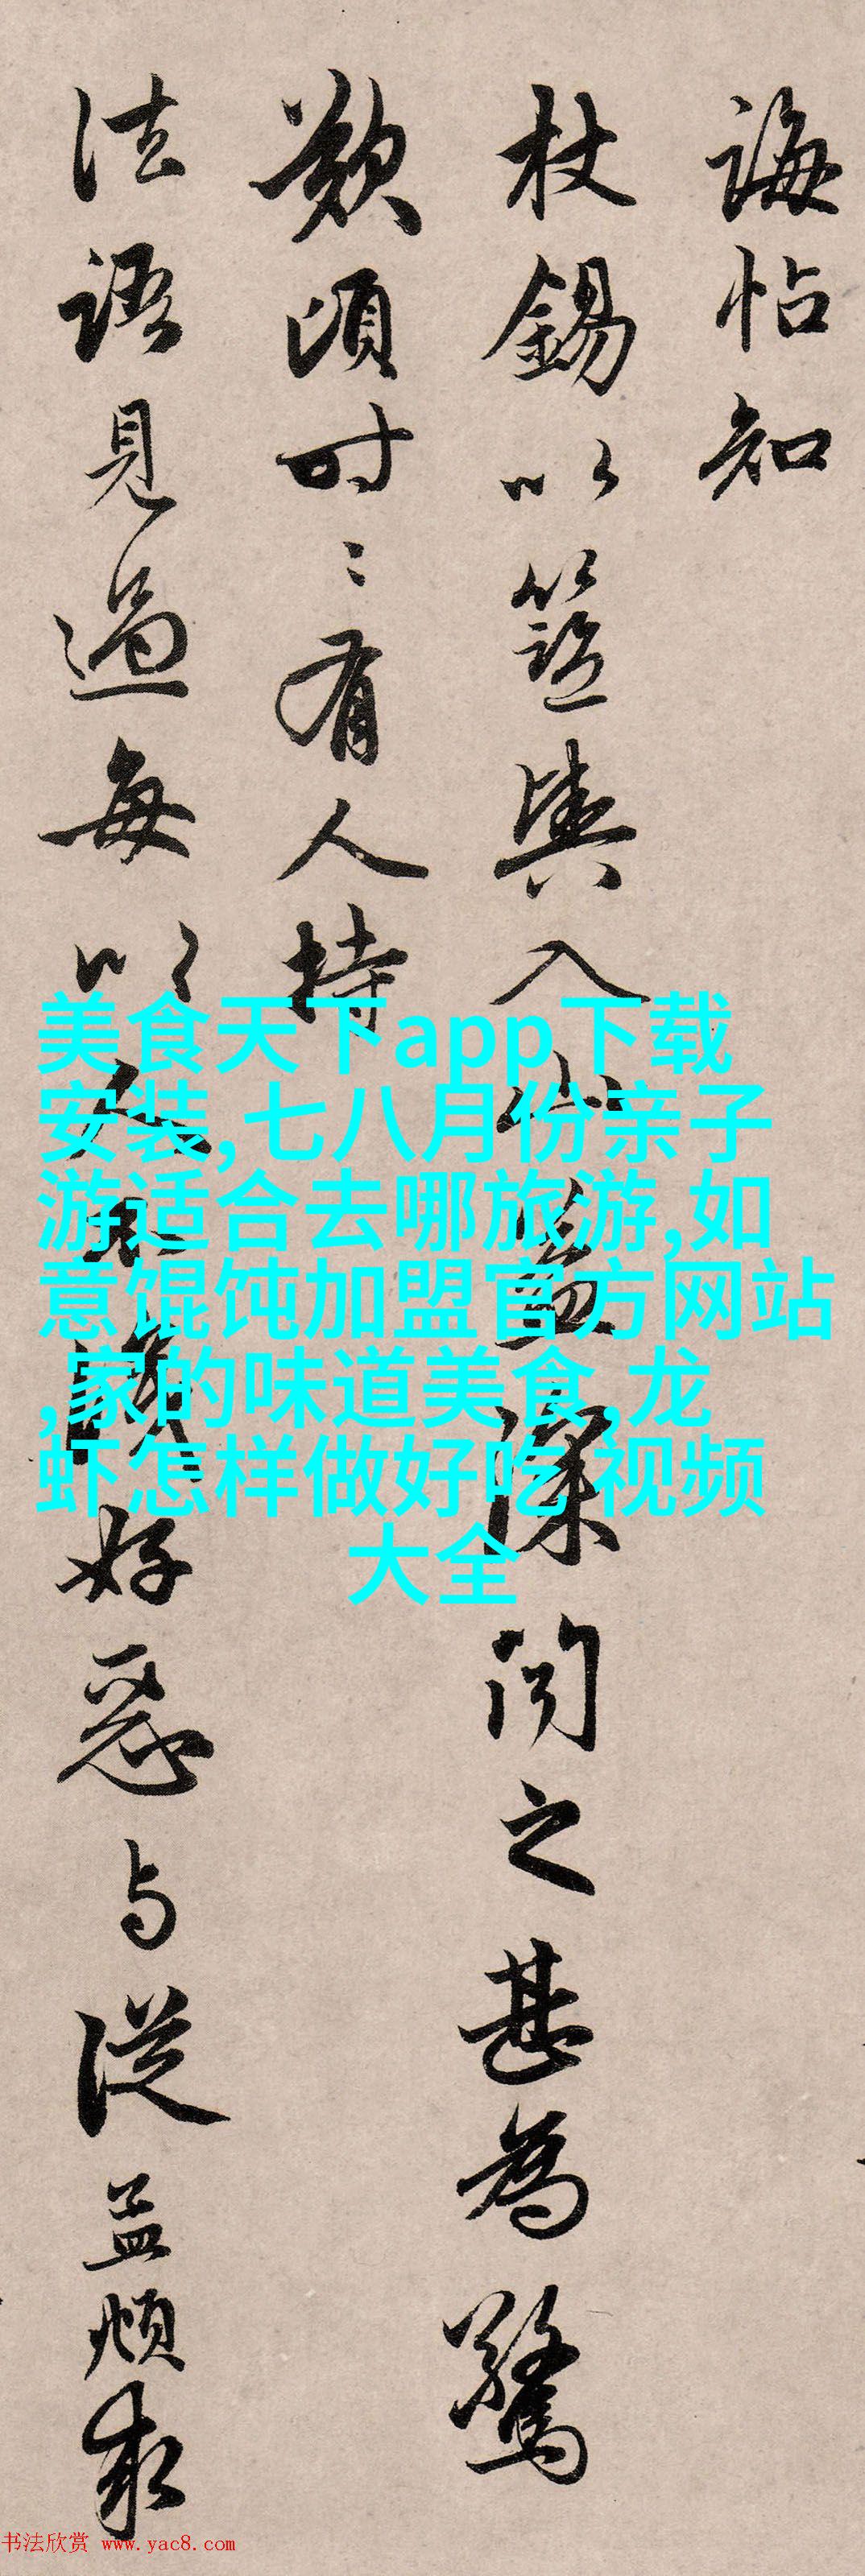 诲帖知
杖锡以篮舆入
深问之甚为驚
歎頃时〻有人持
法语見過每以
好恶与從益煩求
美食天下app下载
安装,七八月份亲子
游适合去哪旅游,如
意馄饨加盟官方网站
,家的味道美食,龙
虾怎样做好吃 视频
大全
书法欣赏 www.yac8.com